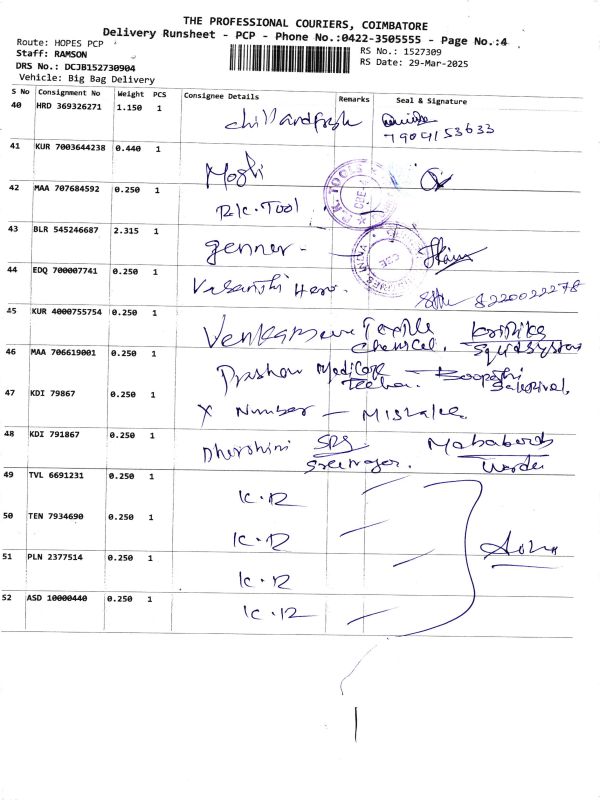 THE PROFESSIONAL COURIERS, COIMBATORE
Delivery Runsheet - PCP - Phone No.:0422-3505555 - Page No.:4
Route: HOPES PCP
Staff: RAMSON
DRS No.: DCJB152730904
Vehicle: Big Bag Delivery
RS No.: 1527309
RS Date: 29-Mar-2025
S No Consignment No Weight PCS Consignee Details Remarks Seal & Signature
40 HRD 369326271 1.150 1 chillandfresh
7904153633
41 KUR 7003644238 0.440 1 Mogli
42 MAA 707684592 0.250 1 R.K. Tool
43 BLR 545246687 2.315 1 genner -
44 EDQ 700007741 0.250 1 Hero. 8220022278
45 KUR 4000755754 0.250 1 Textile
Chemical.
46 MAA 706619001 0.250 1 Medicare
47 KDI 79867 0.250 1 X Number -
48 KDI 791867 0.250 1 Dharshini
49 TVL 6691231 0.250 1 K.12
50 TEN 7934690 0.250 1 K.12
51 PLN 2377514 0.250 1 K.12
52 ASD 10000440 0.250 1 K.12